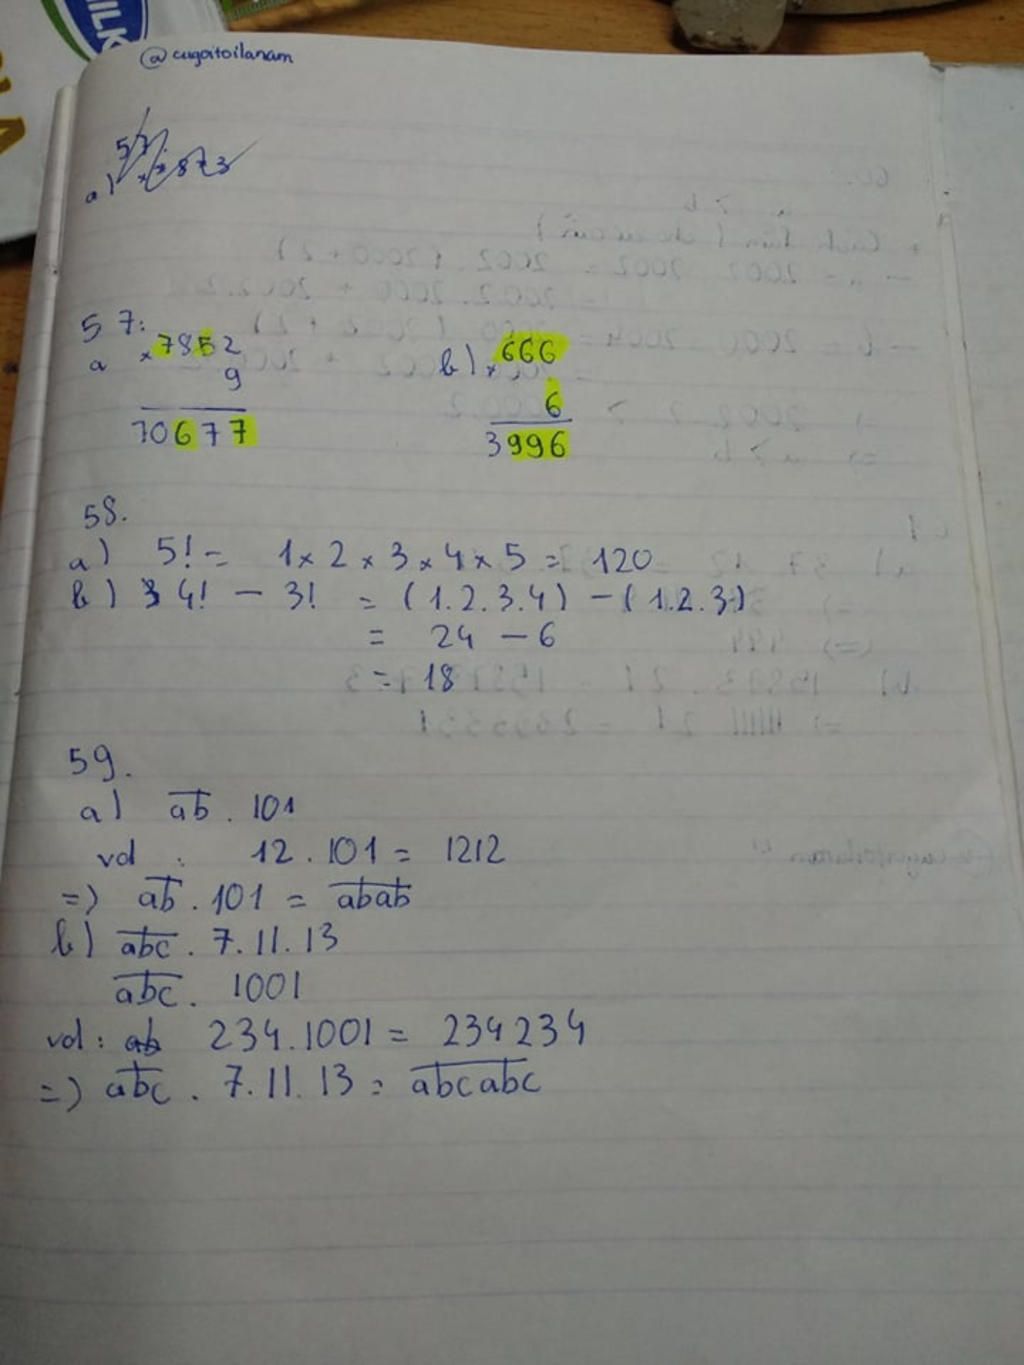 ILK
@cugoitoilanam
57:
a × 7852
9
70677
b) × 666
6
3996
58.
a) 5! = 1 × 2 × 3 × 4 × 5 = 120
b) 4! - 3! = (1.2.3.4) - (1.2.3)
= 24 - 6
= 18
59.
a) a̅b̅ . 101
vd : 12 . 101 = 1212
=) a̅b̅ . 101 = a̅b̅a̅b̅
b) a̅b̅c̅ . 7.11.13
a̅b̅c̅ . 1001
vd : 234.1001 = 234234
=) a̅b̅c̅ . 7.11.13 = a̅b̅c̅a̅b̅c̅